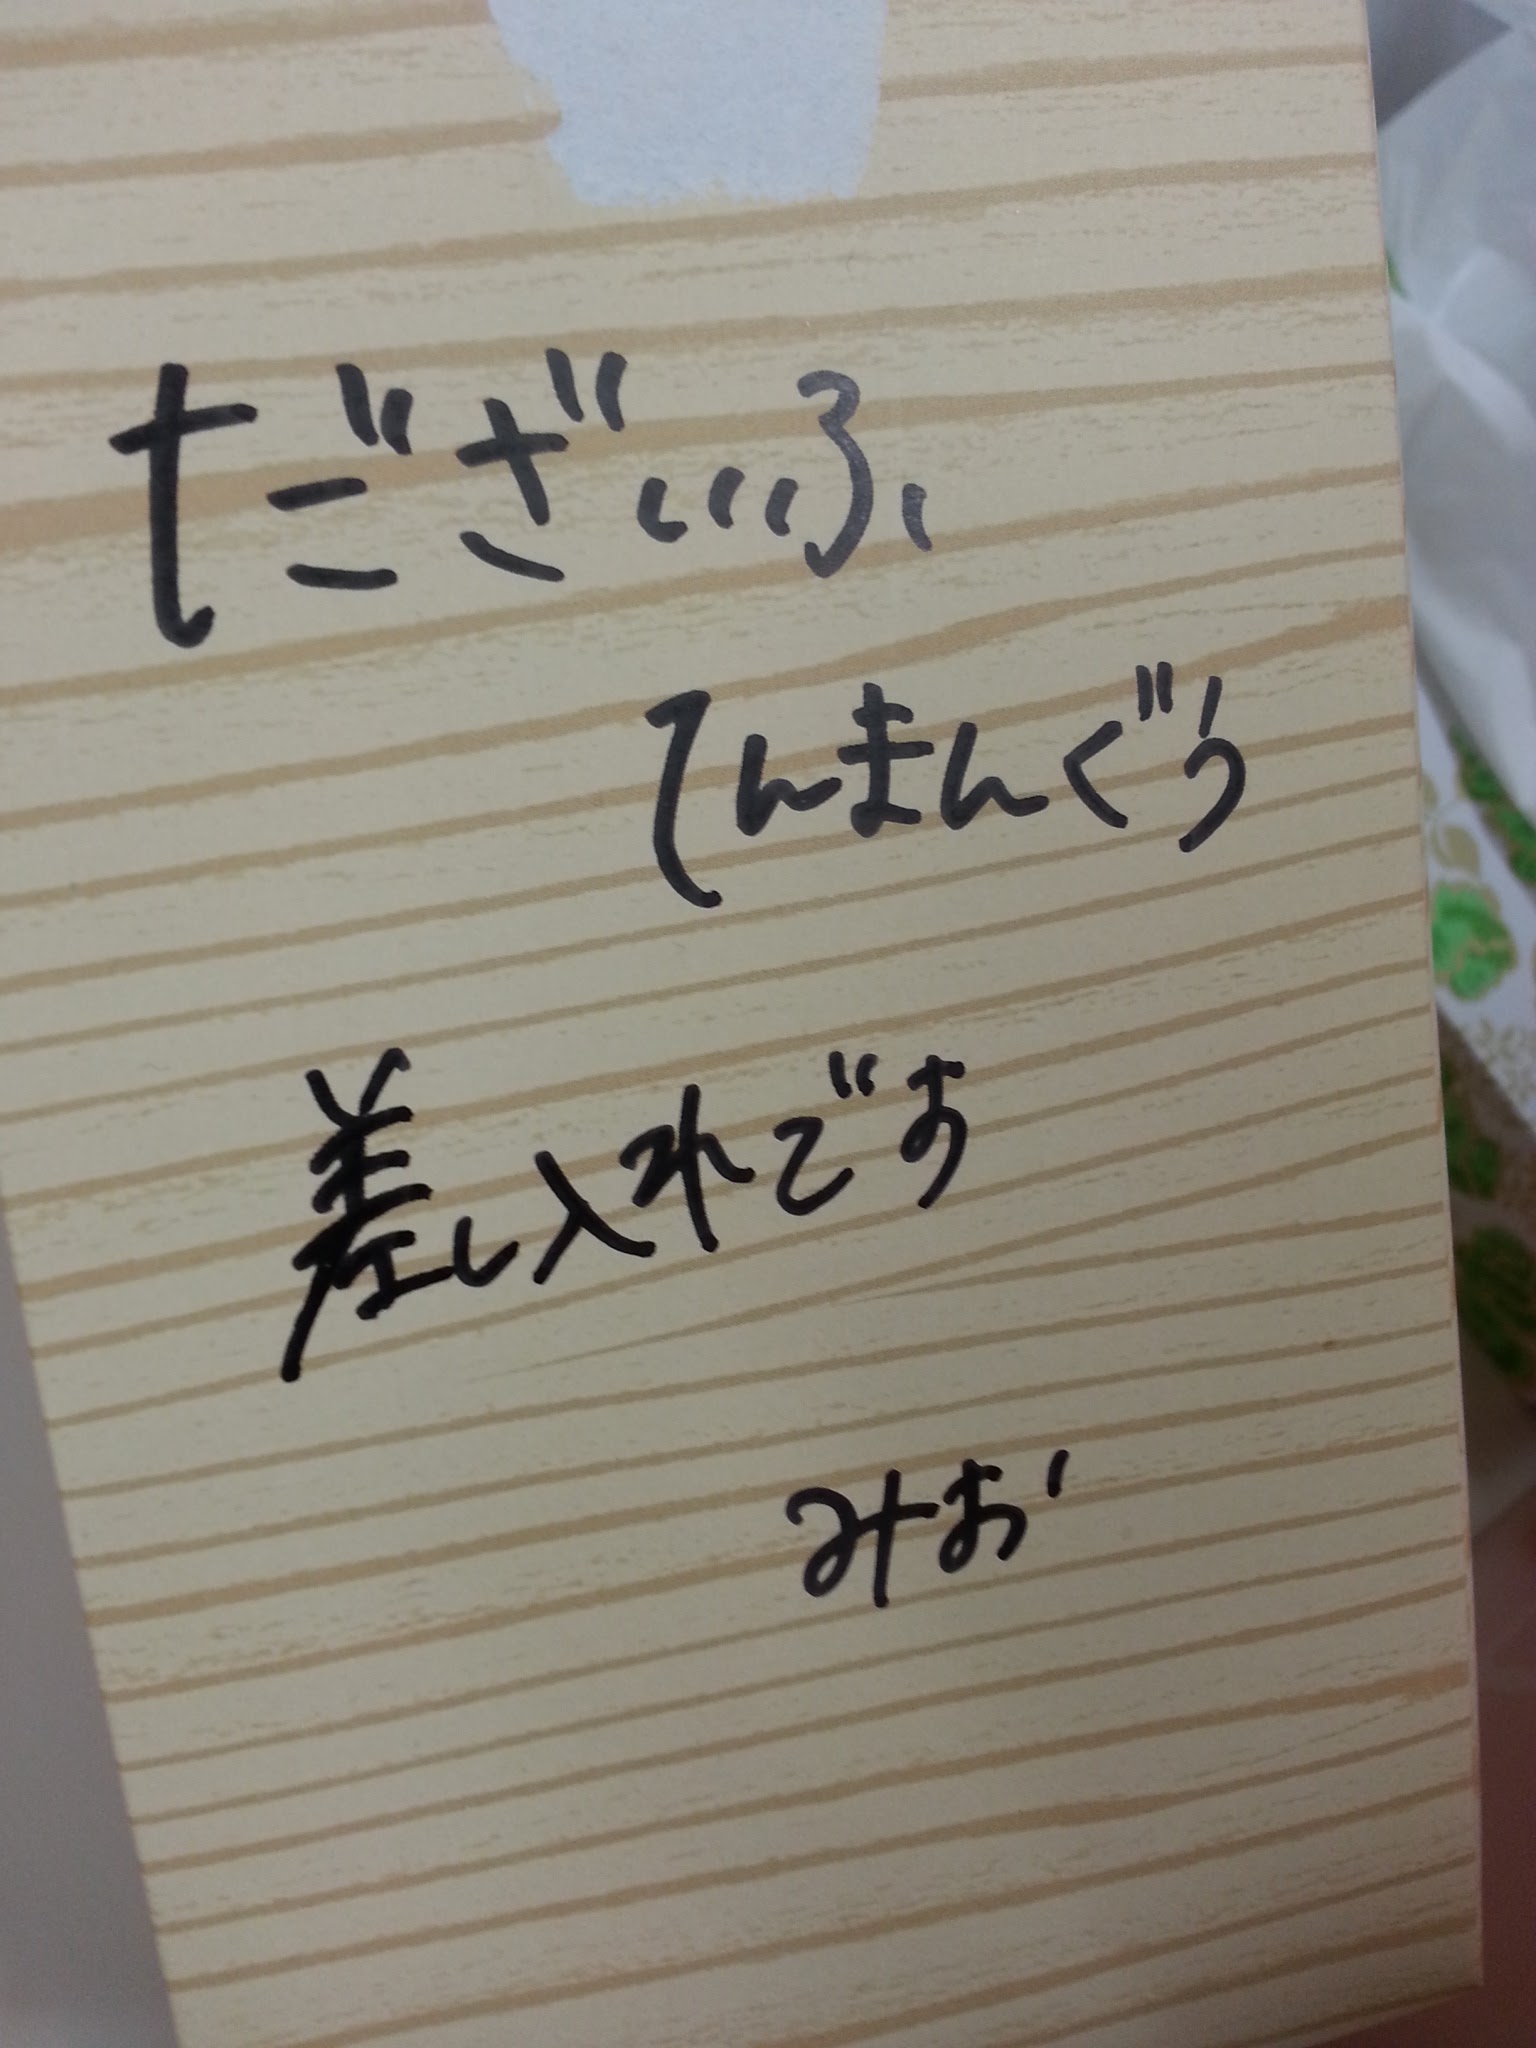 だざいふ
てんまんぐう
差し入れです
みお